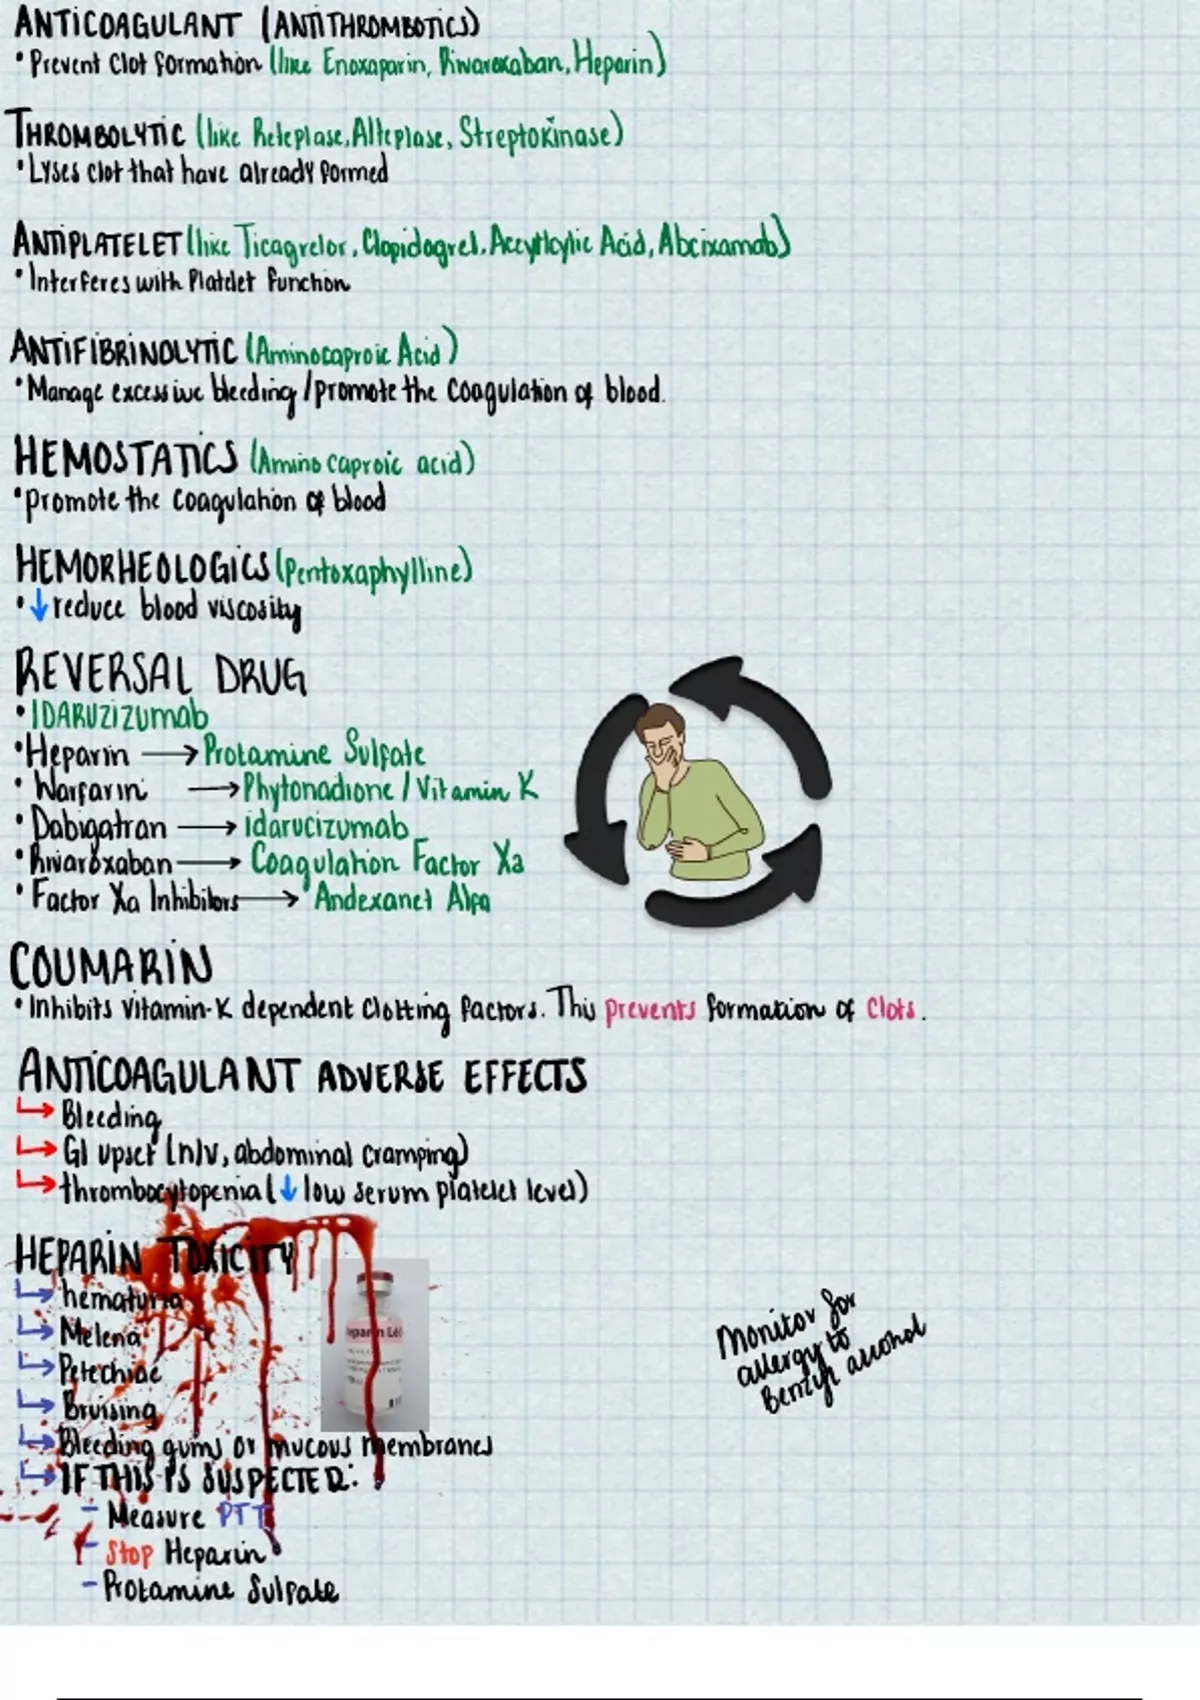 ANTICOAGULANT (ANTITHROMBOTICS)
• Prevent clot formation (like Enoxaparin, Rivaroxaban, Heparin)
THROMBOLYTIC (like Reteplase, Alteplase, Streptokinase)
• Lyses clot that have already formed
ANTIPLATELET (like Ticagrelor, Clopidogrel, Aceytlcylic Acid, Abcixamab)
• Interferes with Platelet function
ANTIFIBRINOLYTIC (Aminocaproic Acid)
• Manage excessive bleeding / promote the coagulation of blood.
HEMOSTATICS (Amino caproic acid)
• promote the coagulation of blood
HEMORHEOLOGICS (Pentoxaphylline)
• ↓ reduce blood viscosity
REVERSAL DRUG
• IDARUZIZUmab
• Heparin → Protamine Sulfate
• Warfarin → Phytonadione / Vitamin K
• Dabigatran → idarucizumab
• Rivaroxaban → Coagulation Factor Xa
• Factor Xa Inhibitors → Andexanet Alfa
COUMARIN
• Inhibits vitamin-K dependent clotting factors. This prevents formation of clots.
ANTICOAGULANT ADVERSE EFFECTS
↳ Bleeding
↳ GI upset (n/v, abdominal cramping)
↳ thrombocytopenia (↓ low serum platelet level)
HEPARIN TOXICITY
↳ hematuria
↳ Melena
↳ Petechiae
↳ Bruising
↳ Bleeding gums or mucous membranes
↳ IF THIS IS SUSPECTED:
- Measure PTT
- Stop Heparin
- Protamine Sulfate
Monitor for
allergy to
Benzyl alcohol